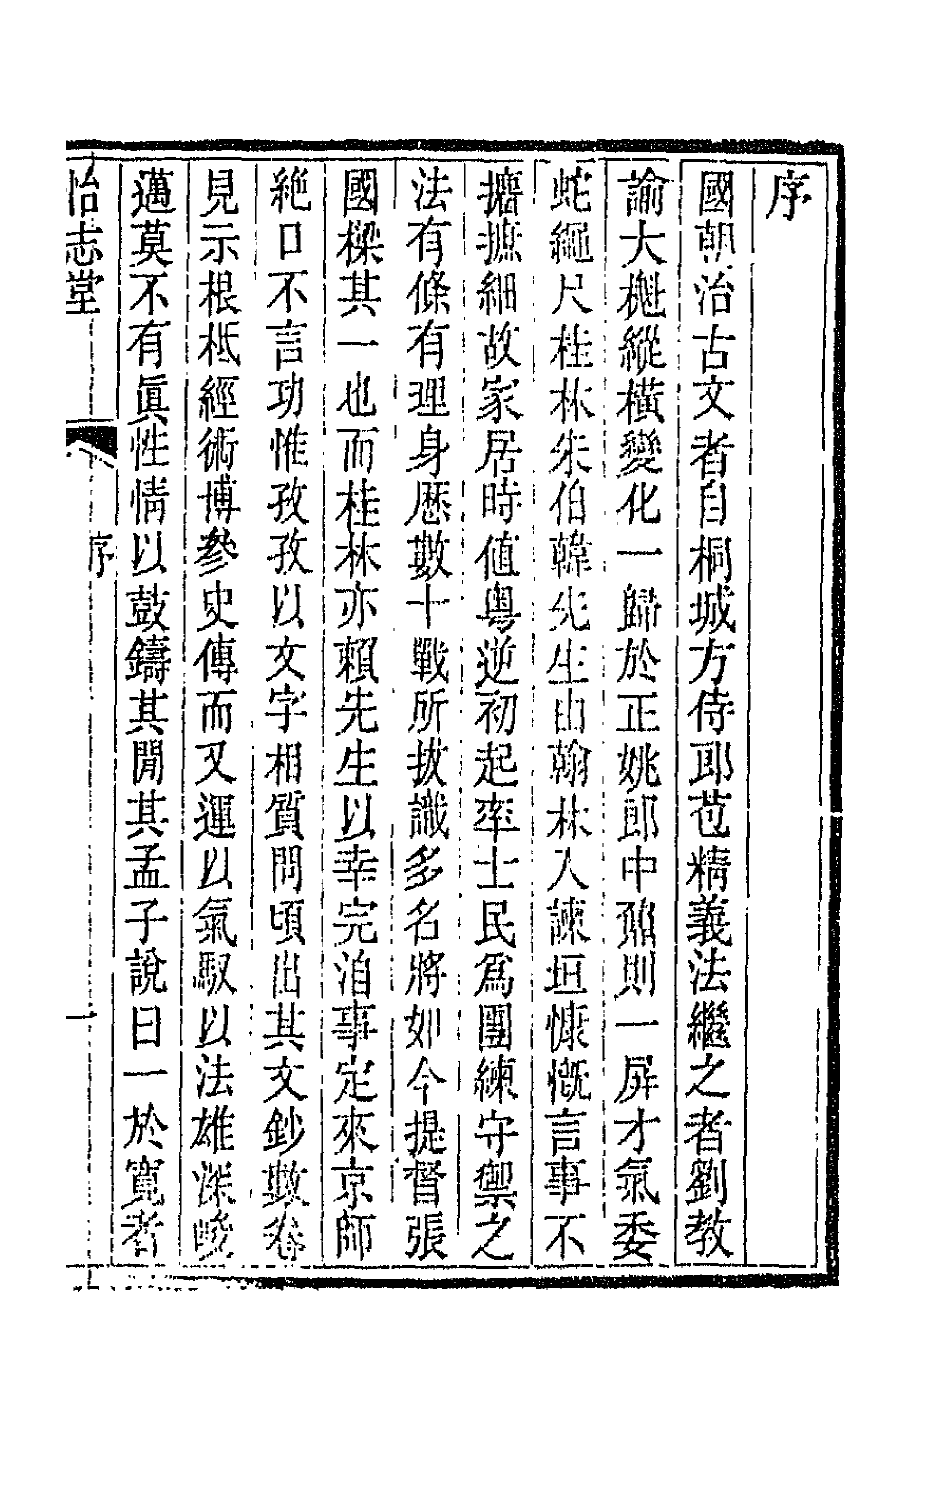 序
國朝治古文者自桐城方侍郎苞精義法繼之者劉教
諭大櫆縱橫變化一歸於正姚郎中鼐則一屏才氣委
蛇繩尺桂林朱伯韓先生由翰林入諫垣慷慨言事不
摭細故家居時值粵逆初起率士民爲團練守禦之
法有條有理身歷數十戰所拔識多名將如今提督張
國樑其一也而桂林亦賴先生以幸完洎事定來京師
絶口不言功惟孜孜以文字相質問頃出其文鈔數卷
見示根柢經術博參史傳而又運以氣馭以法雄深峻
邁莫不有眞性情以鼓鑄其閒其孟子說曰一於寬者
怡志堂
序
一